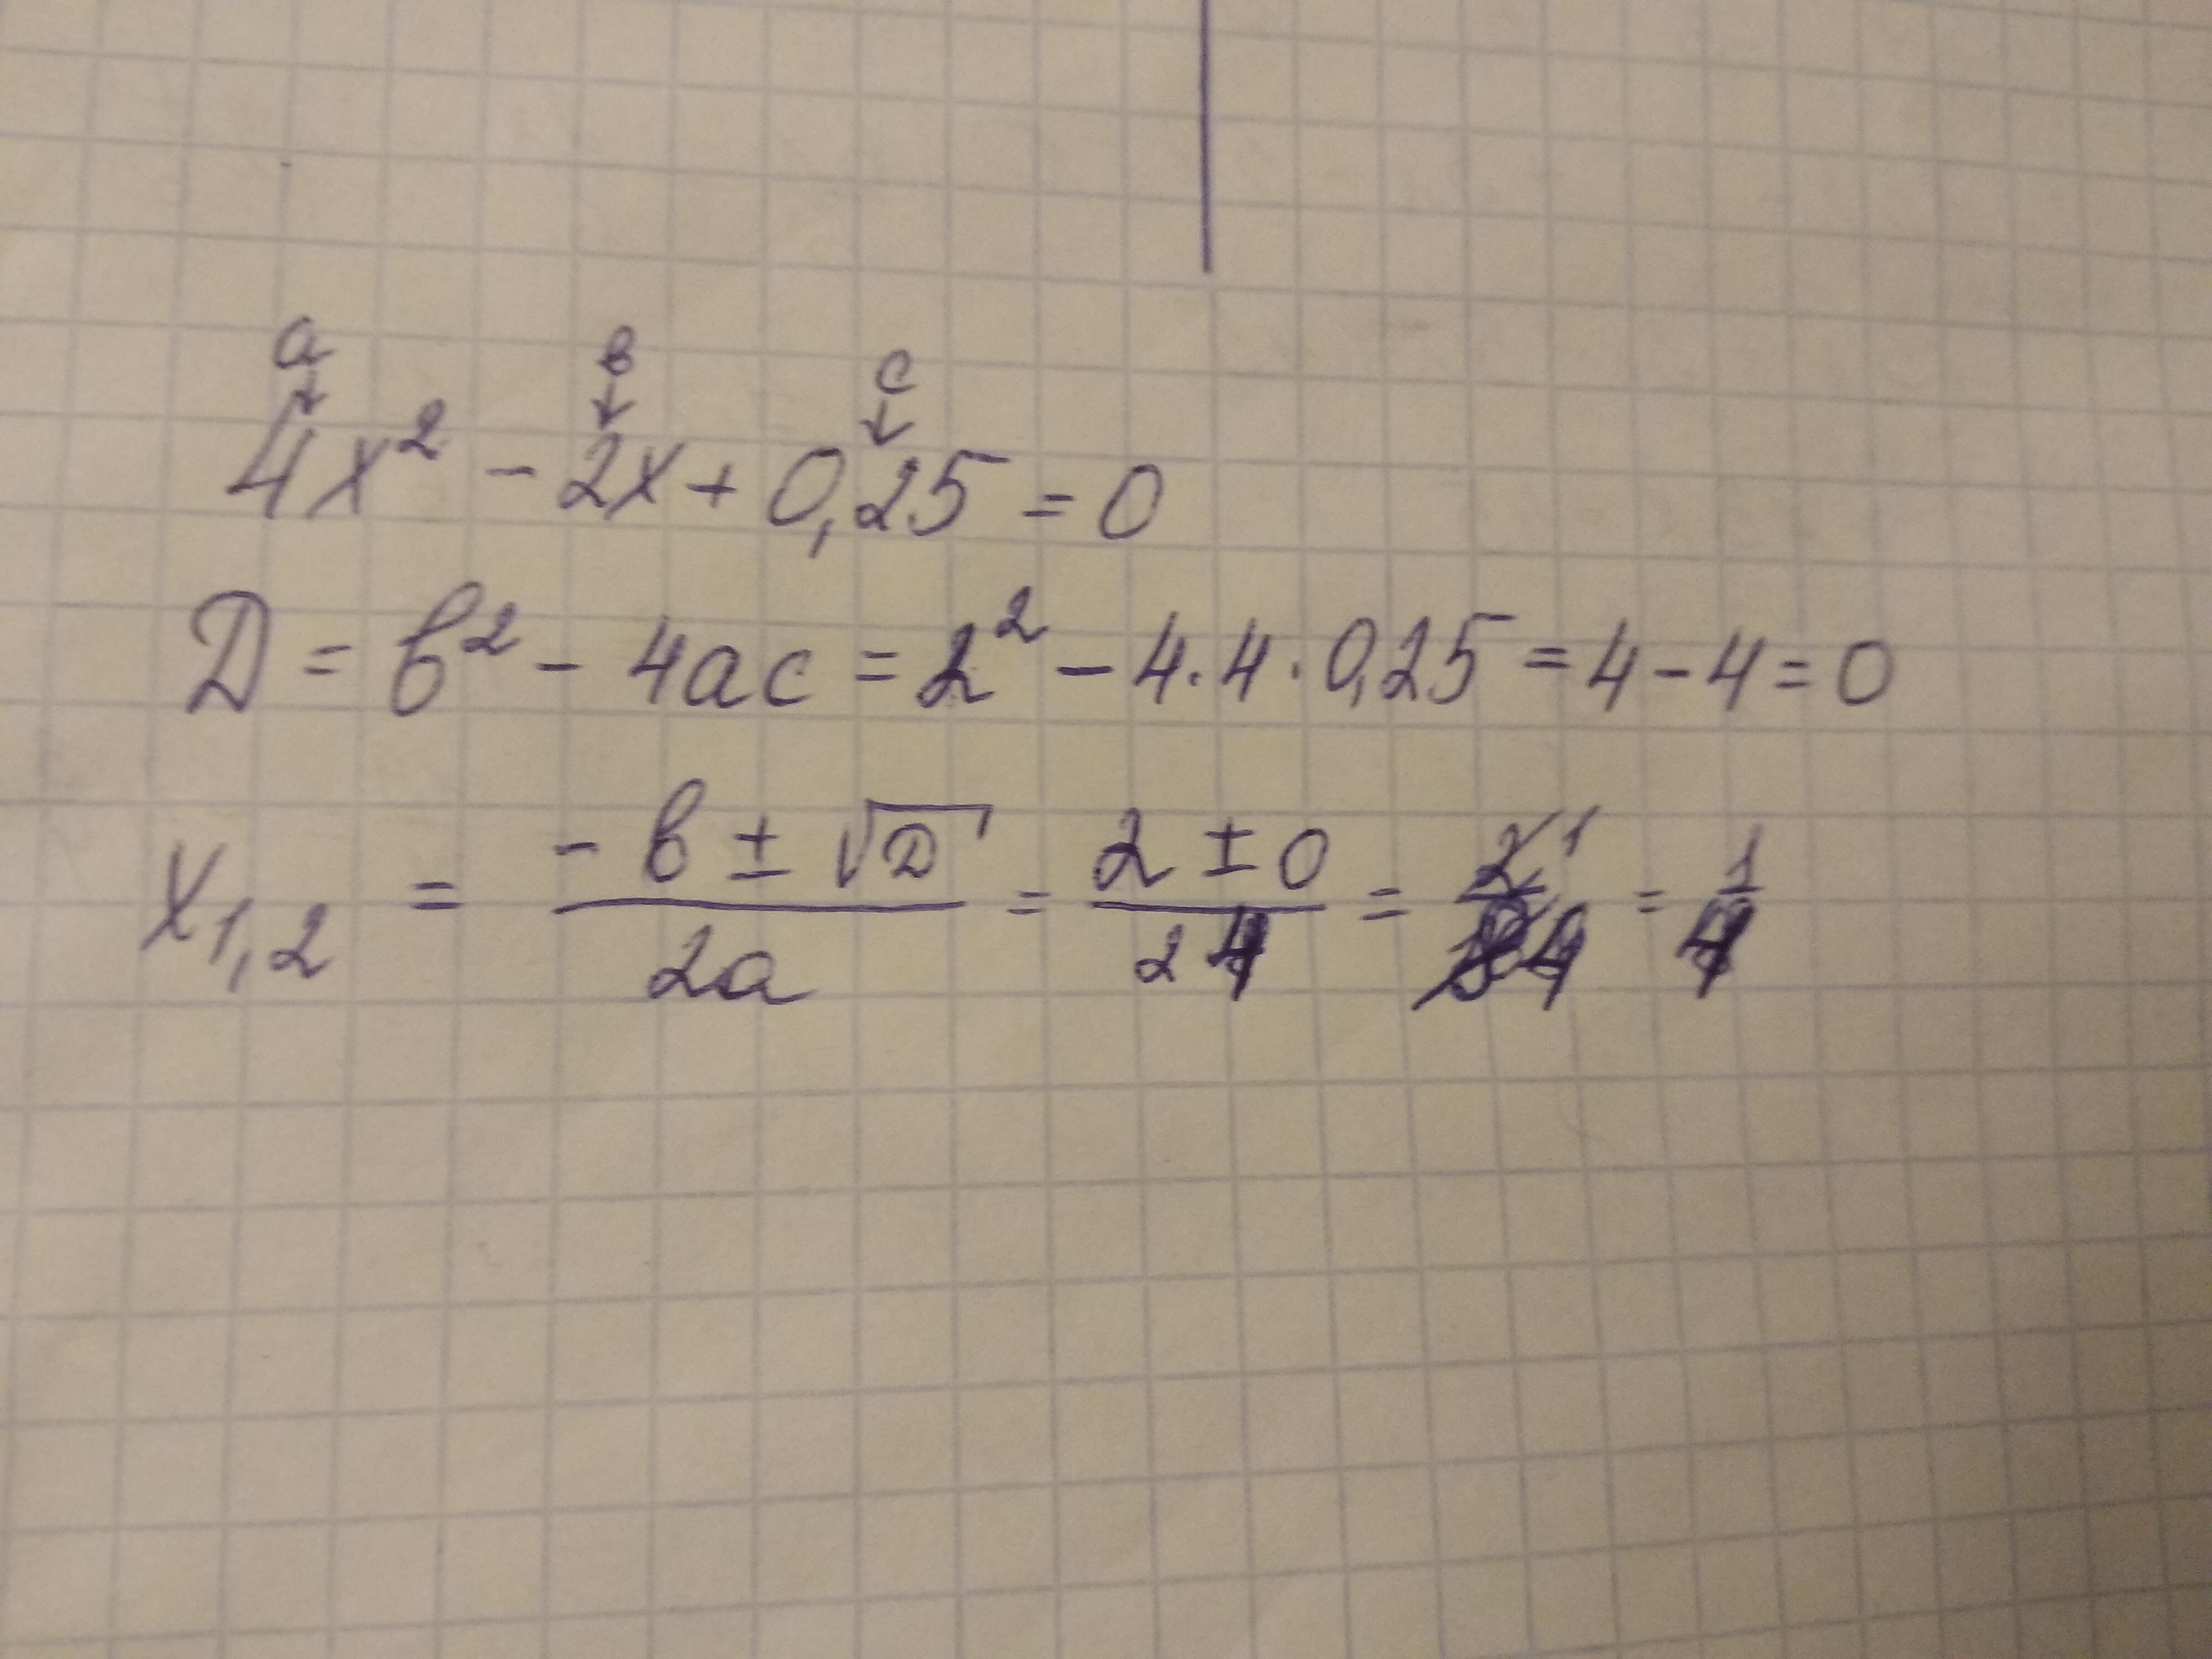 a в c
4x² - 2x + 0,25 = 0
D = в² - 4ac = 2² - 4·4·0,25 = 4 - 4 = 0
x₁,₂ = (-в ± √D)/2a = (2 ± 0)/24 = 2 1/4 = 1/4